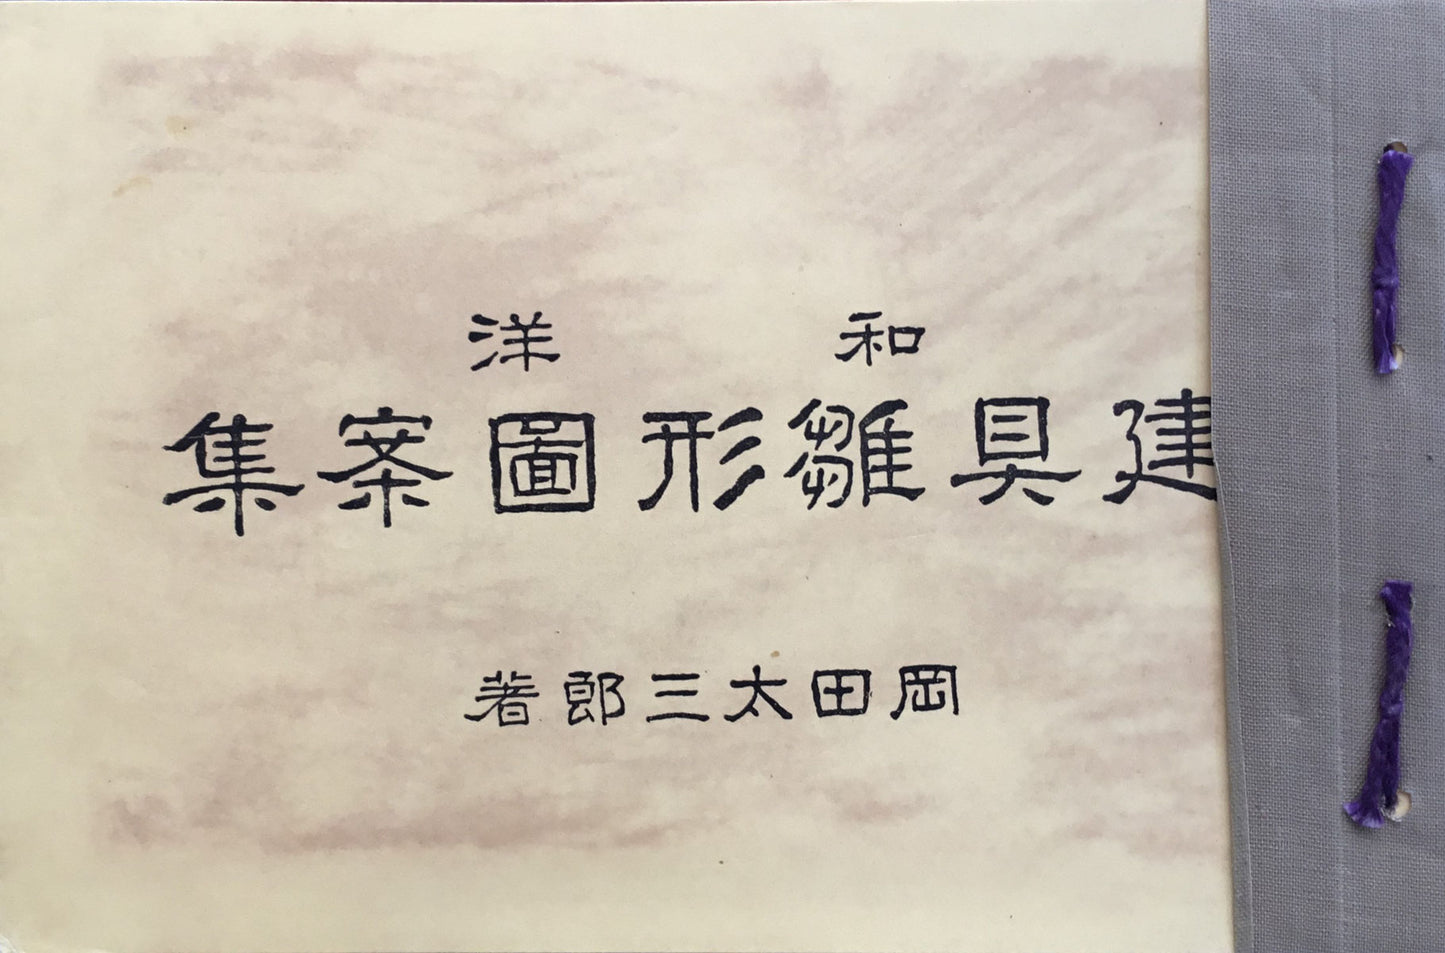 和洋
建具雛形圖案集
岡田太三郎著